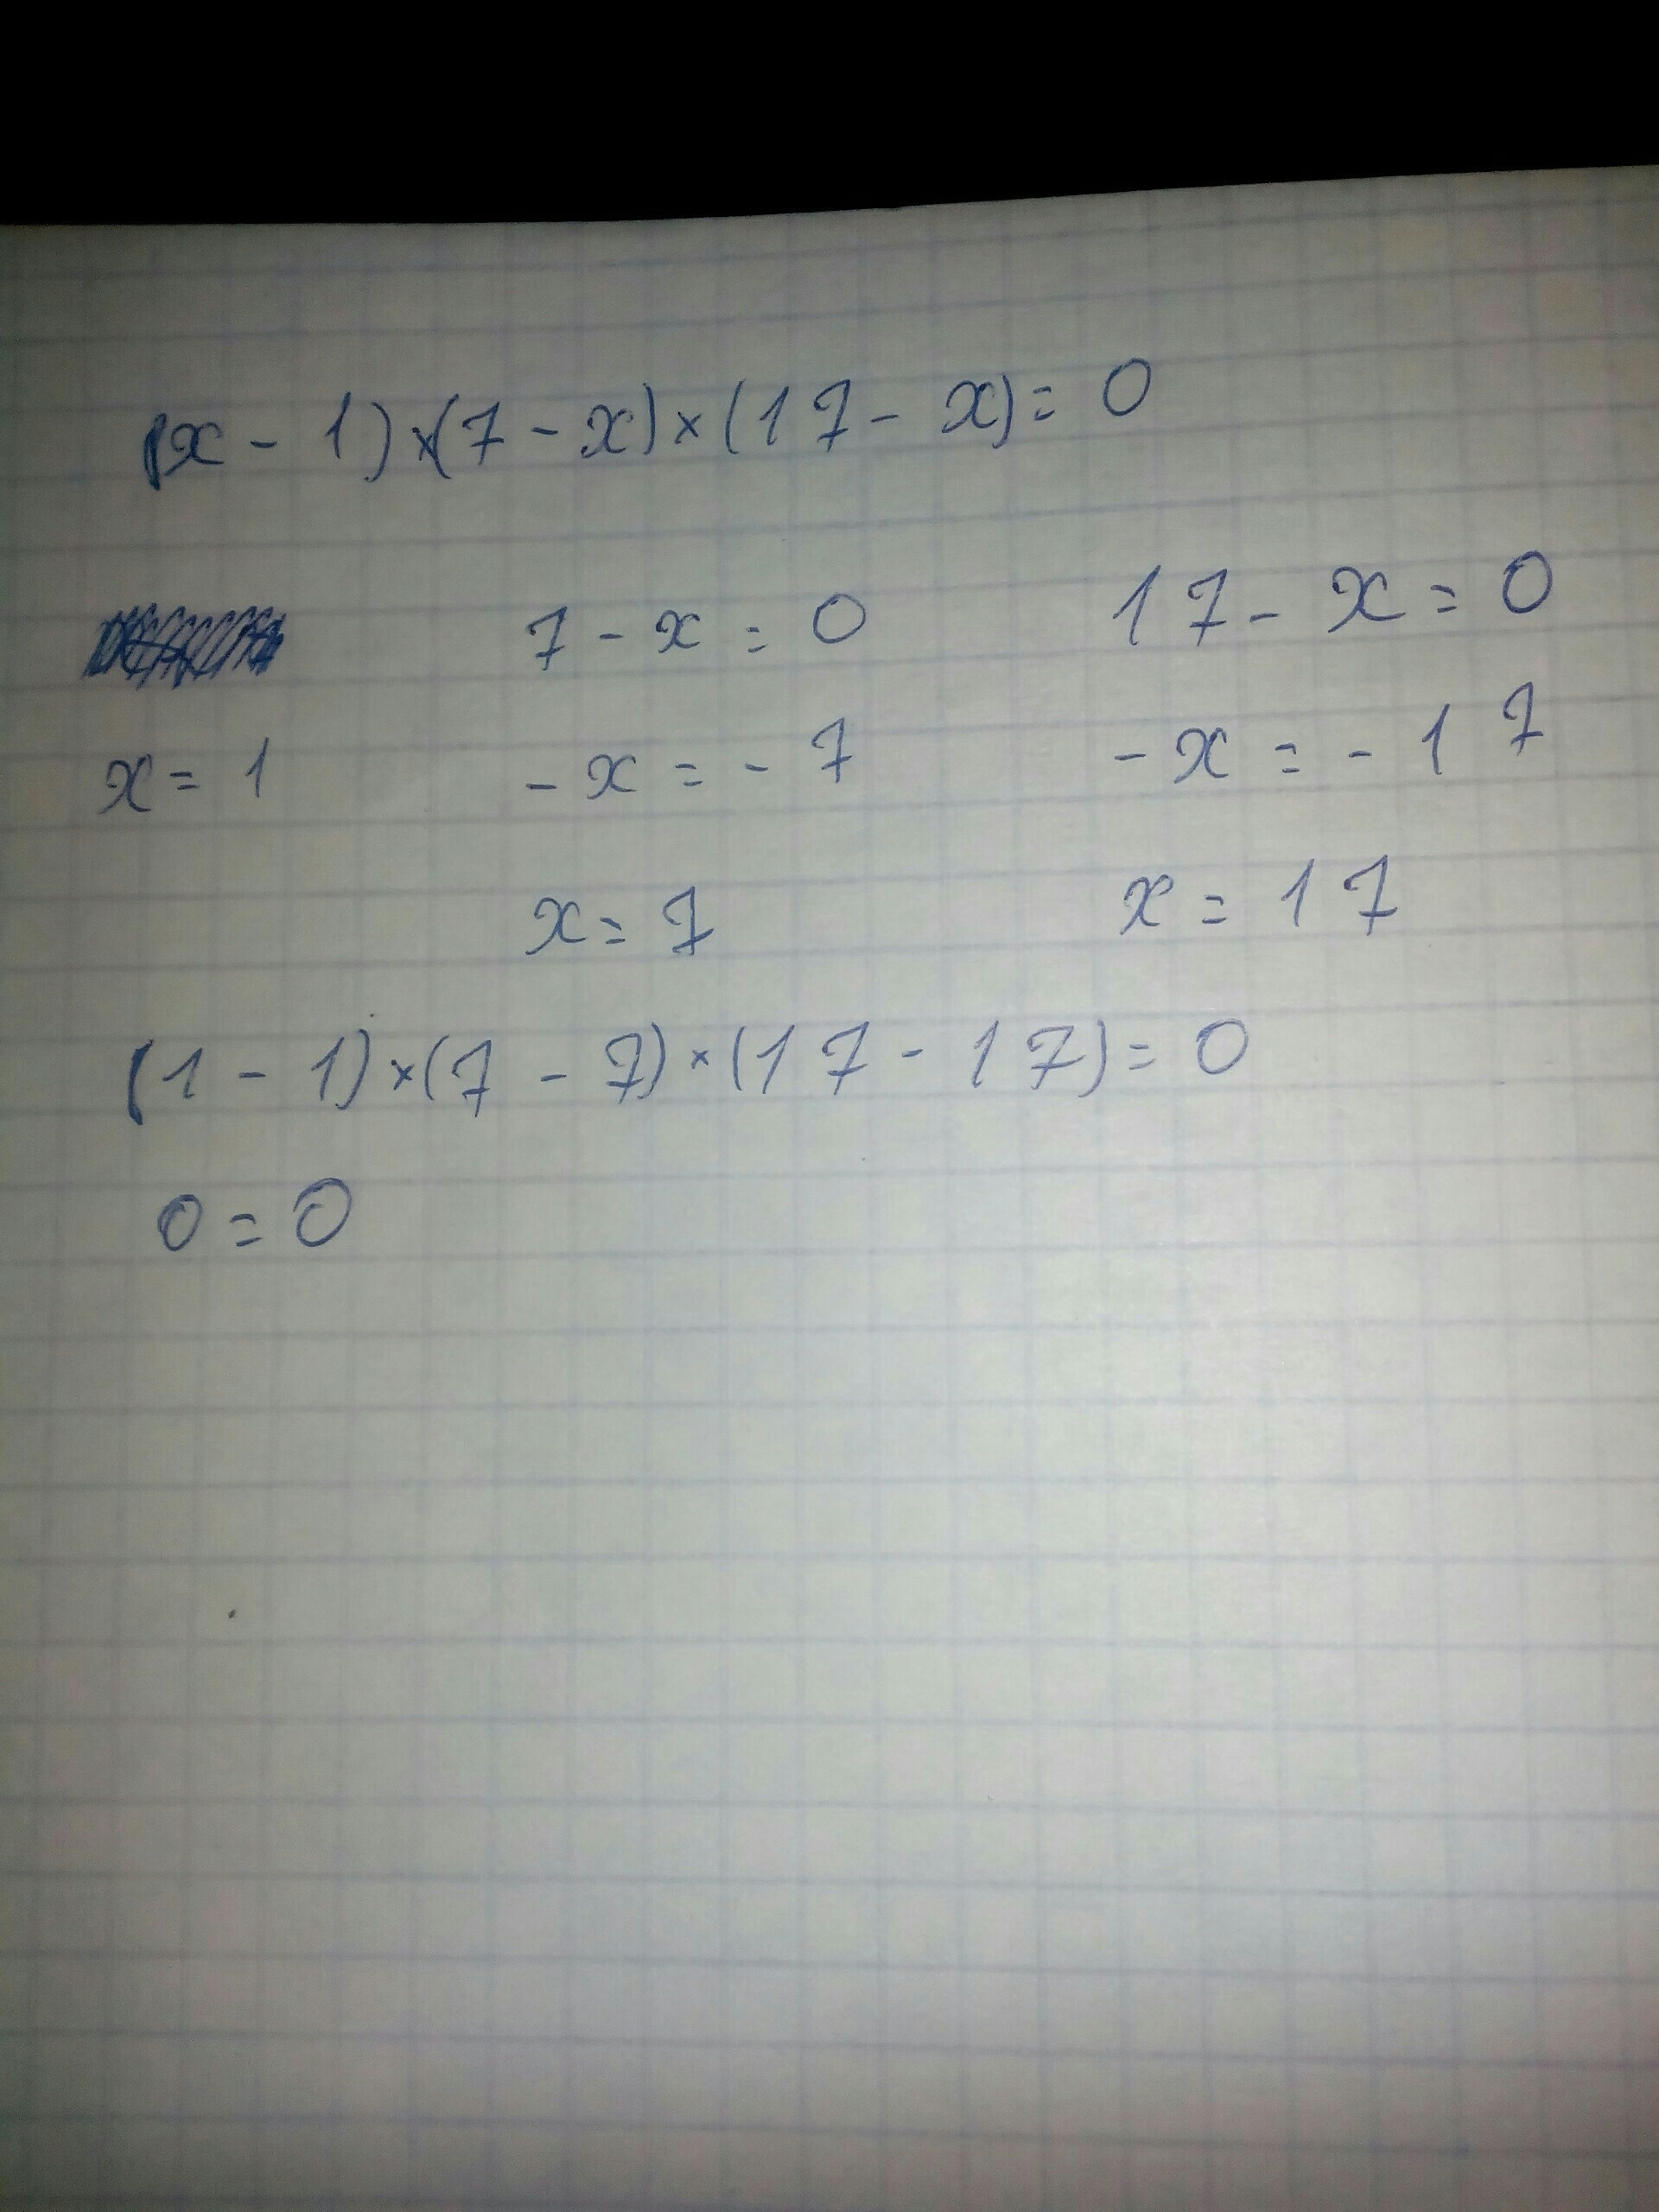 (x - 1) × (7 - x) × (17 - x) = 0
7 - x = 0 17 - x = 0
x = 1 - x = - 7 - x = - 17
x = 7 x = 17
(1 - 1) × (7 - 7) × (17 - 17) = 0
0 = 0